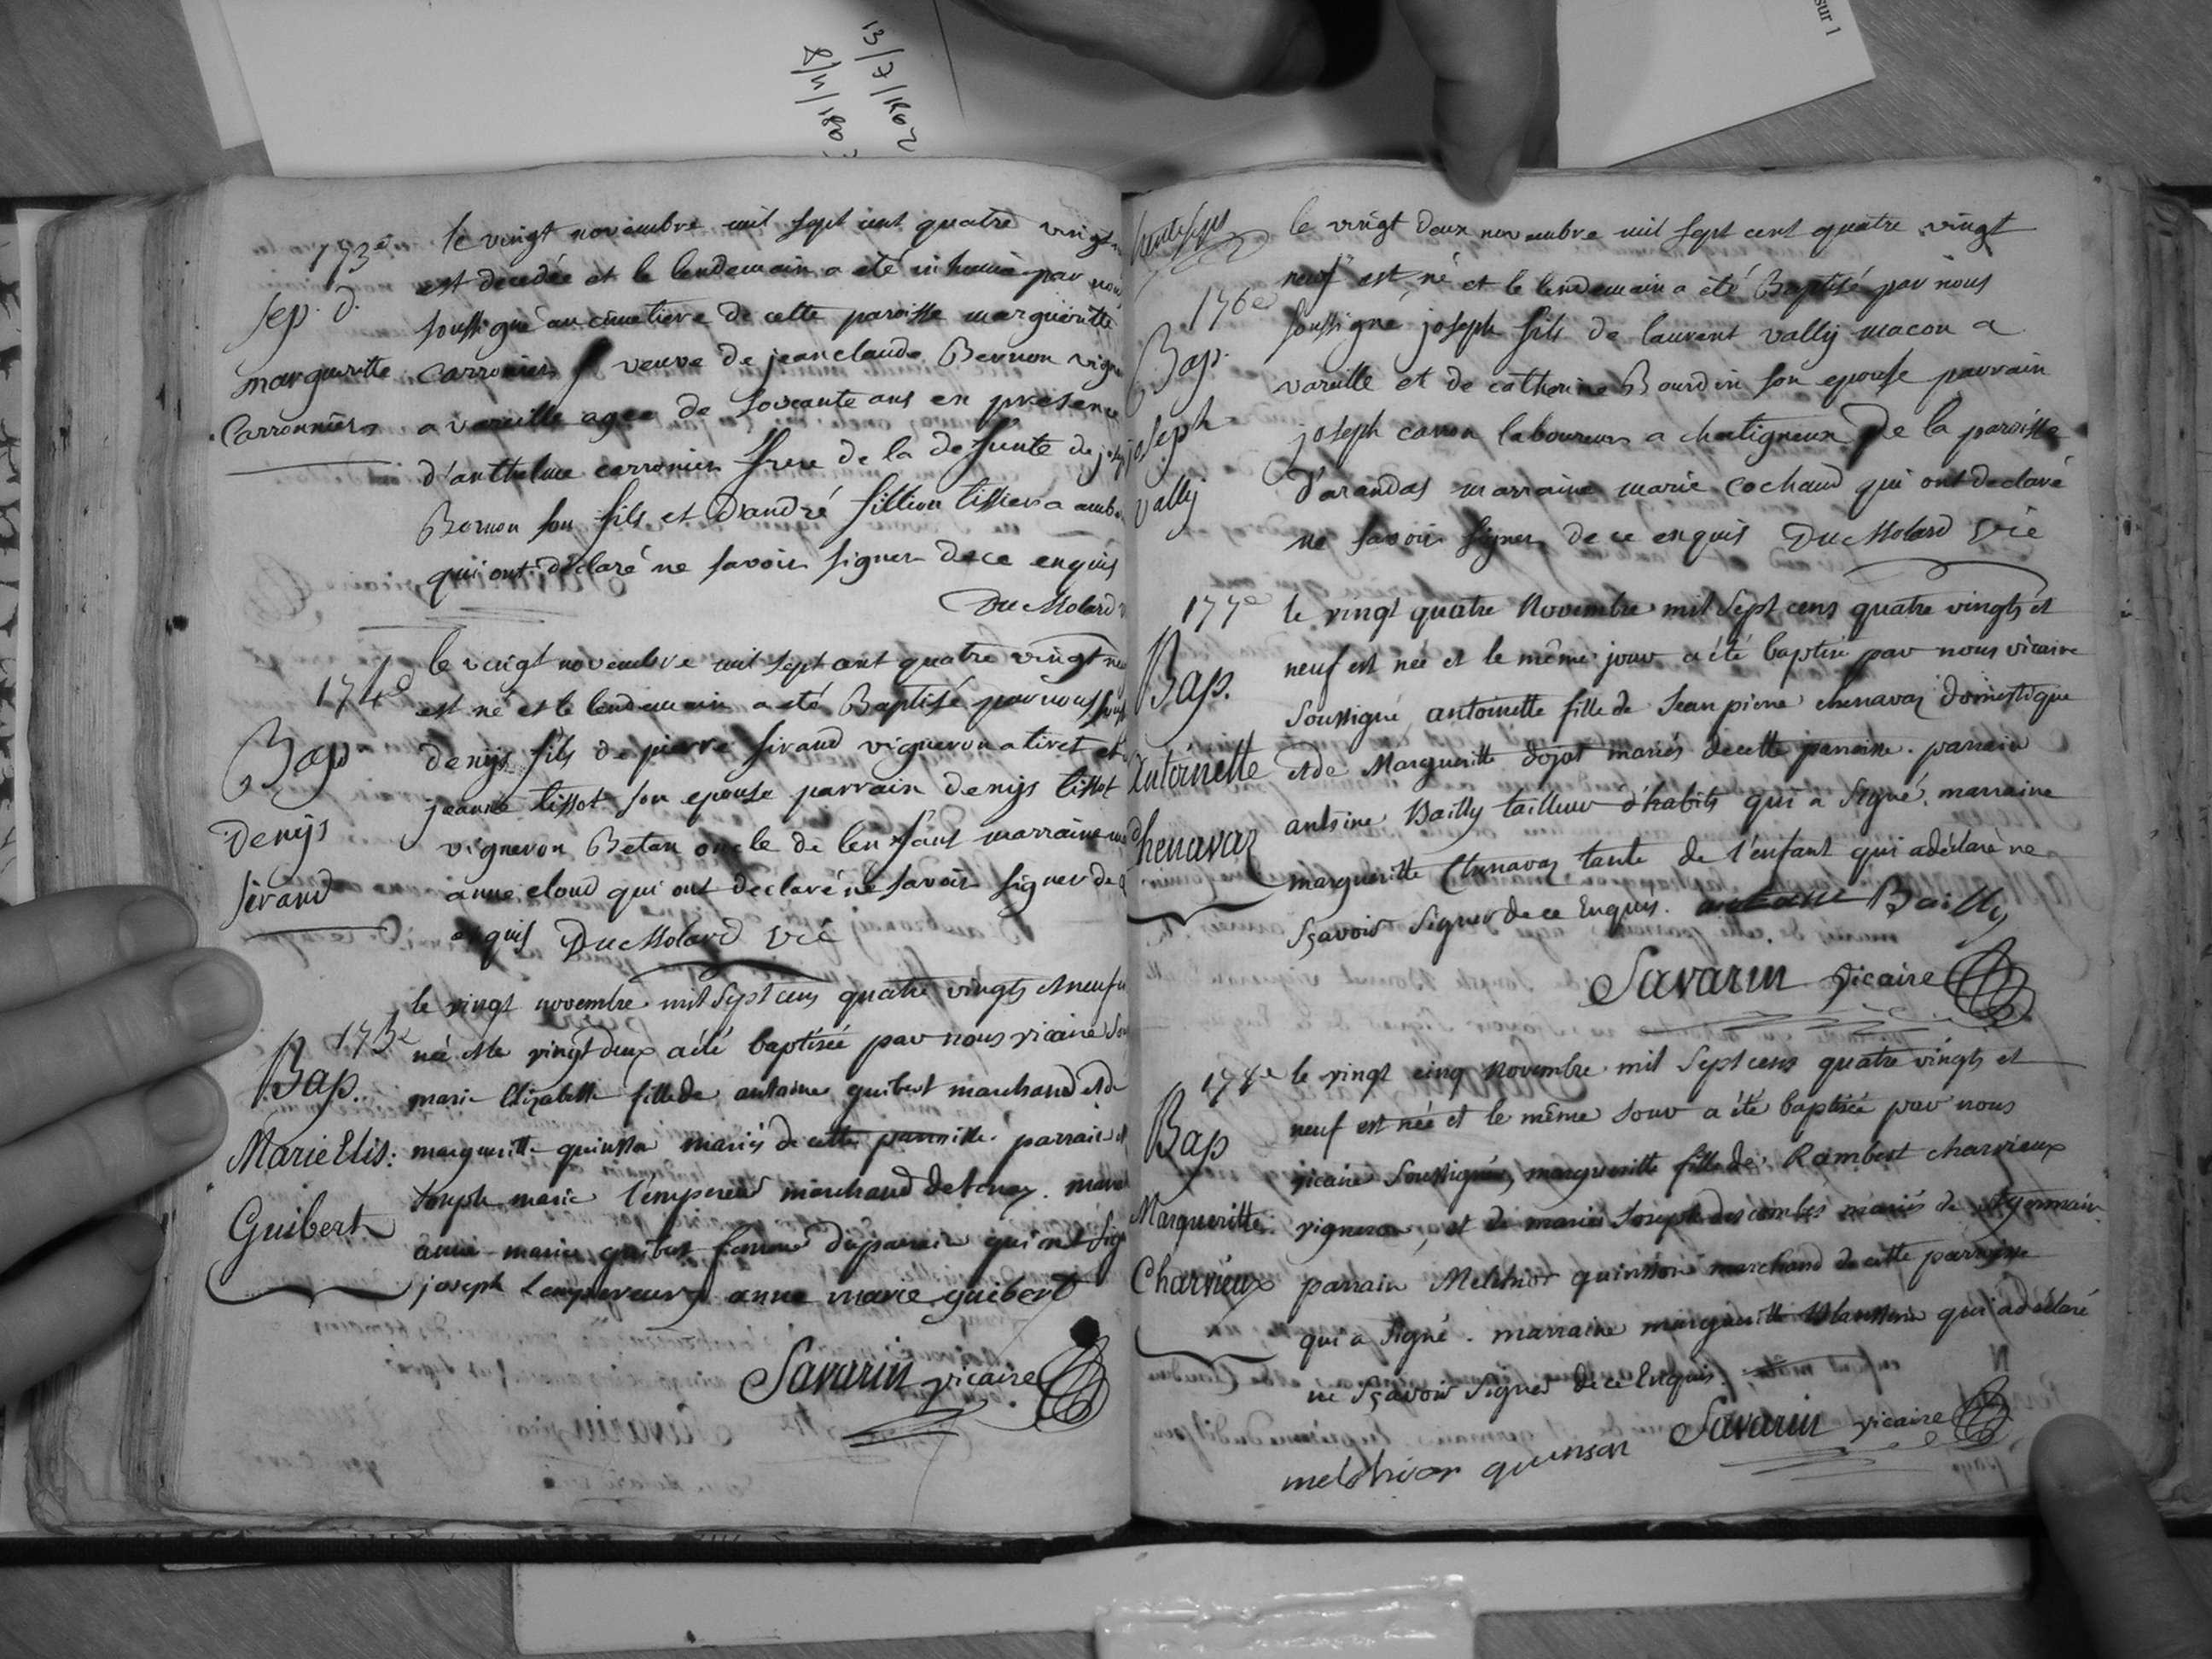 sur 1
13/7/1802
8/4/180
173e
Sep. d.
margueritte
Carronniers
le vingt novembre mil sept cent quatre vingt
est decedée et le lendemain a été inhumée par nous
soussigné au cimetiere de cette paroisse margueritte
carronier veuve de jean claude Bernon vigne
a vareille agee de soixante ans en presence
d'anthelme carronier frere de la defunte de
Bernon son fils et d'andré fillion tissier a amb
qui ont déclaré ne savoir signer de ce enquis
Du Molard
174e
Bap
denijs
sirand
le vingt novembre mil sept cent quatre vingt
est né et le lendemain a été Baptisé par nous sous
denijs fils de pierre sirand vigneron a tiret et
jeanne tissot son epouse parrain denijs tissot
vigneron Betan oncle de lenfant marraine
anne cloud qui ont declaré ne savoir signer de
enquis Du Molard vic
175e
Bap.
Marie Elis:
Guibert
le vingt novembre mil sept cens quatre vingts et neuf
née et le vingt deux a été baptisée par nous vicaire
marie Elizabeth fille de antoine guibert marchand et de
margueritte quinson mariés de cette paroisse. parrain
Joseph marie l'empereur marchand de tenay.
anne marie guibert femme du parrain qui ont sig
joseph Lempereur anne marie guibert
Savarin vicaire
176e
Bap.
joseph
vallij
le vingt deux novembre mil sept cent quatre vingt
neuf est né et le lendemain a été Baptisé par nous
soussigné joseph fils de laurent vallij macon a
vareille et de catherine Bourdin son epouse parrain
joseph carron laboureur a chatigneux de la paroisse
d'arandas marraine marie cochaud qui ont declaré
ne savoir signer de ce enquis Du Molard vic
177e
Bap.
Antoinette
Chenavaz
le vingt quatre Novembre mil sept cens quatre vingts et
neuf est née et le même jour a été baptisée par nous vicaire
soussigné antoinette fille de Jean pierre chenavaz domestique
et de Margueritte dojat mariés de cette paroisse. parrain
antoine Bailly tailleur d'habits qui a signé. marraine
margueritte Chenavaz tante de l'enfant qui a déclaré ne
sçavoir signer de ce Enquis. antoine Bailly
Savarin vicaire
178e
Bap
Margueritte
Charvieux
le vingt cinq Novembre mil sept cens quatre vingts et
neuf est née et le même Jour a été baptisée par nous
vicaire soussigné, margueritte fille de Rambert charvieux
vigneron, et de marie Joseph descombes mariés de St germain
parrain Melchior quinson marchand de cette paroisse
qui a signé. marraine margueritte qui a déclaré
ne sçavoir signer de ce Enquis.
Savarin vicaire
melchior quinson